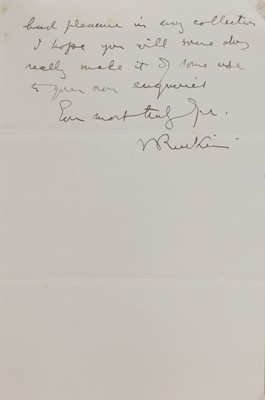 had pleasure in my collection
I hope you will some day
really make it of some use
to your own enquiries
Ever most truly Yrs.
J Ruskin